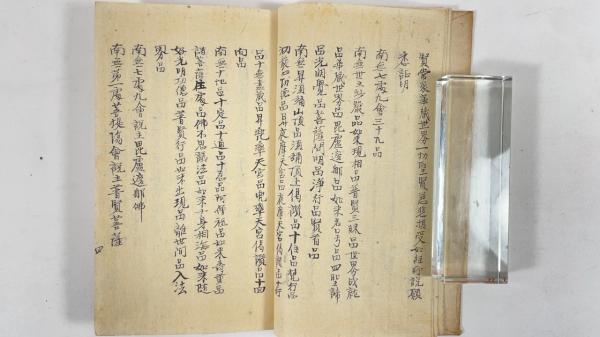 賢常衆華藏世界一切聖賢慈悲攝受如經所說願
悉証明
南無七處九會三十九品
南無世主妙嚴品如來現相品普賢三昧品世界成就
品華藏世界品毘盧遮那品如來名号品四聖諦
品光明覺品菩薩問明品淨行品賢首品
南無昇須弥山頂品須弥頂上偈讚品十住品梵行品
初發心功德品昇夜摩天宮品夜摩天宮偈讚品十行
品十無盡藏品昇兜率天宮品兜率天宮偈讚品十囬
向品
南無十地品十定品十通品十忍品阿僧祇品如來壽量品
諸菩薩住處品佛不思議法品如來十身相海品如來随
好光明功德品普賢行品如來出現品離世间品入法
界品
南無七處九會說主毘盧遮那佛
南無第一處菩提塲會說主普賢菩薩
四